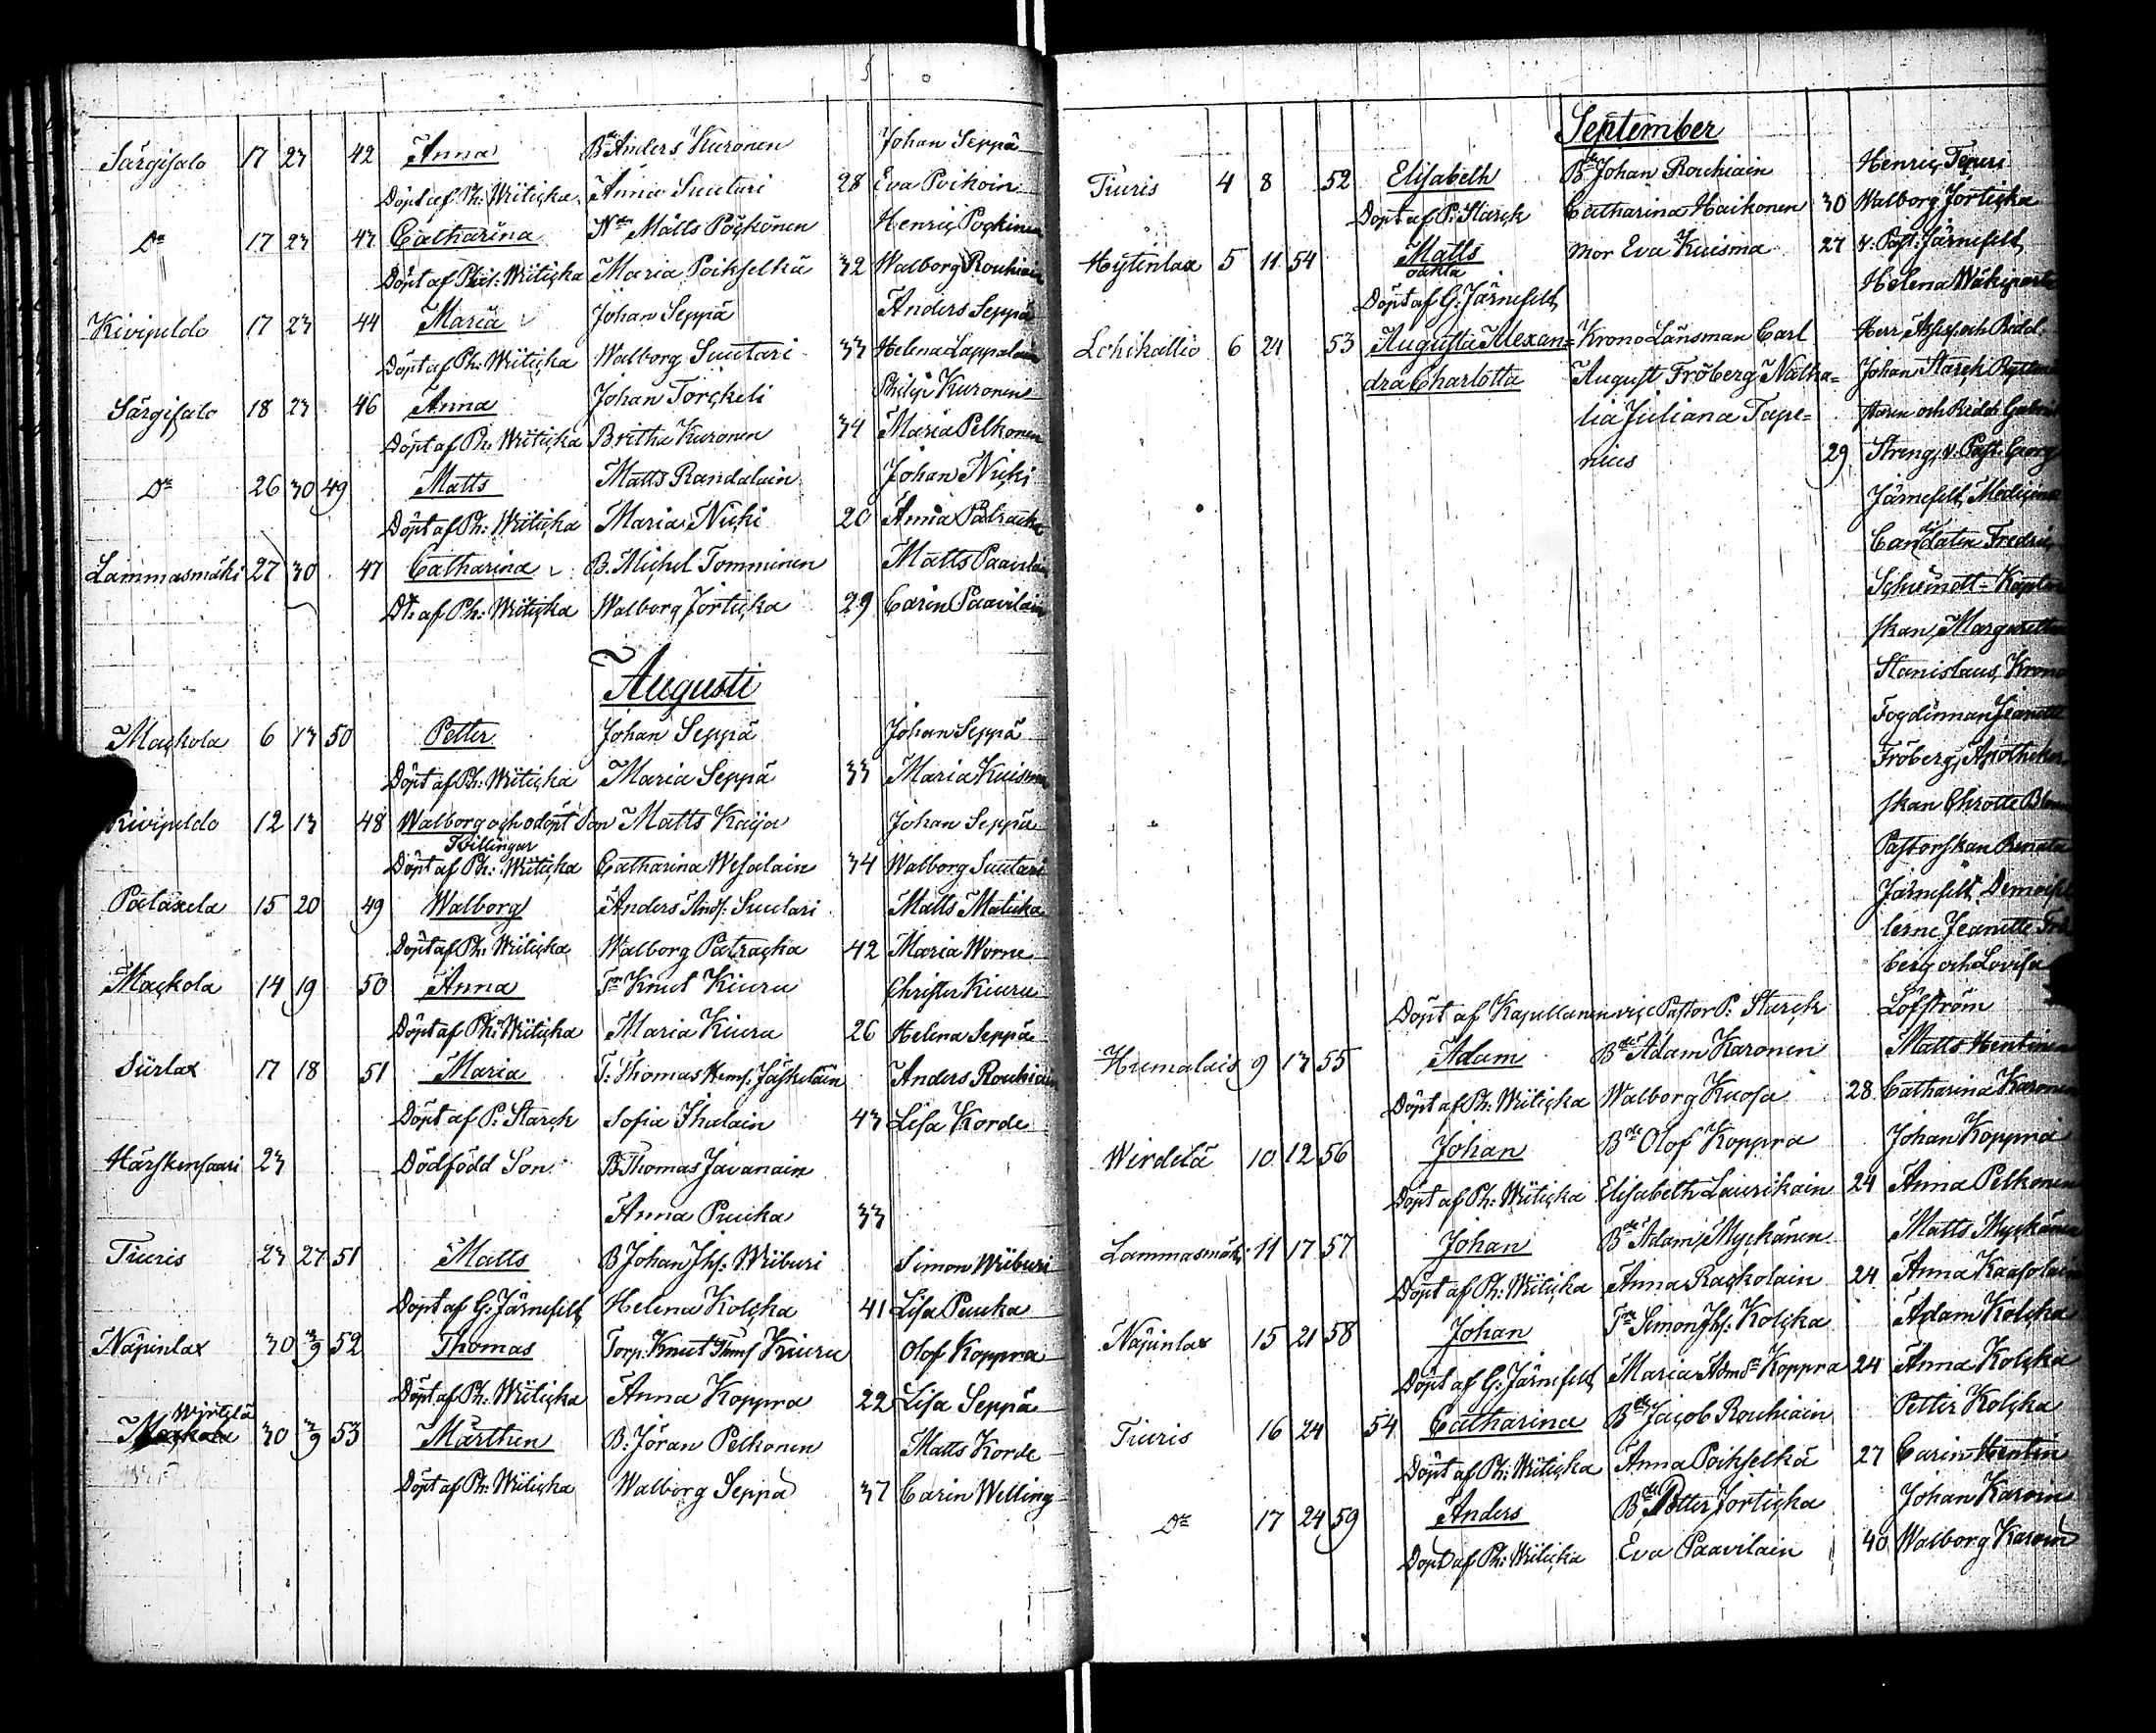 Särgisalo 17 23 42 Anna Bde Anders Kuronen Johan Seppä
Döpt af Ph: Wiiticka Anna Suutari 28 Eva Poikoin
Do 17 23 43 Catharina Matts Pöckönen Henric Pöckinen
Döpt af Phil: Wiiticka Maria Poikselkä 32 Walborg Rouhiain
Kivipeldo 17 23 44 Maria Johan Seppä Anders Seppä
Döpt af Ph: Wiiticka Walborg Suutari 33 Helena Lappalain
Särgisalo 18 23 46 Anna Johan Törckeli Philip Kuronen
Döpt af Ph: Wiiticka Britha Kuronen 34 Maria Pelkonen
Do 26 30 49 Matts Matts Randalain Johan Nicki
Döpt af Ph: Wiiticka Maria Nicki 20 Anna Patracka
Lammasmäki 27 30 47 Catharina B. Michel Tomminen Matts Paavilain
Dt. af Ph: Wiiticka Walborg Jorticka 29 Carin Paavilain
Augusti
Mackola 6 13 50 Petter Johan Seppä Johan Seppä
Döpt af Ph: Wiiticka Maria Seppä 33 Maria Kuisma
Kivipeldo 12 13 48 Walborg och odöpt Son Matts Kaija Johan Seppä
Tvillingar
Döpt af Ph: Wiiticka Catharina Wesalain 34 Walborg Suutari
15 20 49 Walborg Anders And: Suutari Matts Maticka
Döpt af Ph: Wiiticka Walborg Patracka 42 Maria Worne
Mackola 14 19 50 Anna Tr Knut Kiuru Christer Kiuru
Döpt af Ph: Wiiticka Maria Kiuru 26 Helena Seppä
Siirlax 17 18 51 Maria T: Thomas Hens: Jäskeläin Anders Rouhiain
Döpt af P: Starck Sofia Ihalain 43 Lisa Korde
Härskensaari 23 Dödfödd Son B Thomas Javanain
Anna Puuka 33
Tiuris 23 27 51 Matts B Johan Jhs: Wiiburi Simon Wiiburi
Döpt af G: Järnefelt Helena Kolcka 41 Lisa Puuka
Näpinlax 30 3/9 52 Thomas Torp: Knut Thms Kiuru Olof Koppra
Döpt af Ph: Wiiticka Anna Koppra 22 Lisa Seppä
Wirtelä
Mackola 30 3/9 53 Mårthen B: Jöran Pelkonen Matts Korde
Döpt af Ph: Wiiticka Walborg Seppä 37 Carin Welling
September
Tiuris 4 8 52 Elisabeth Bde Johan Rouhiain Henric Teperi
Döpt af P: Starck Catharina Haikonen 30 Walborg Jorticka
Hytinlax 5 11 54 Matts Mor Eva Kuisma 27 v. Past: Järnefelt
oäkta Helena
Döpt af G: Järnefelt
Lohikallio 6 21 53 Augusta Alexan= Krono Länsman Carl Herr Assess: och Ridd.
dra Charlotta August Fröberg Natha= Johan Starck
lia Juliana Tape= staren och Ridd Gabriel
nius 29 Streng, v. Past: Georg
Järnefelt, Medicine
Candidaten Fredric
Schwindt= Kapten
skan Margaretha
Stanislaus, Krono
Fogdinnan Jeanette
Fröberg, Apotheker
skan Chrotte
Pastorskan Renata
Järnefelt, Demoisel
lerne Jeanette Frö
berg och Lovisa
Döpt af Kapellanen vice Pastor P: Starck Löfström
Huemalais 9 13 55 Adam Bde Adam Karonen Matts Hentinen
Döpt af Ph: Wiiticka Walborg Kuosa 28 Catharina Karonen
Wirdelä 10 12 56 Johan Bde Olof Koppra Johan Koppra
Döpt af Ph: Wiiticka Elisabeth Laurikain 24 Anna Pelkonen
Lammasmäki 11 17 57 Johan Bde Adam Myckänen Matts Myckänen
Döpt af Ph: Wiiticka Anna Rackolain 24 Anna Kaasolain
Näpinlax 15 21 58 Johan Tr Simon Jhs: Kolcka Adam Kolcka
Döpt af G: Järnefelt Maria Admdr Koppra 24 Anna Kolcka
Tiuris 16 24 54 Catharina Bde Jacob Rouhiain Petter Kolcka
Döpt af Ph: Wiiticka Anna Poikselkä 27 Carin Hentin
Do 17 24 59 Anders Bde Petter Jorticka Johan Karoin
Döpt af Ph: Wiiticka Eva Paavilain 40 Walborg Karoin